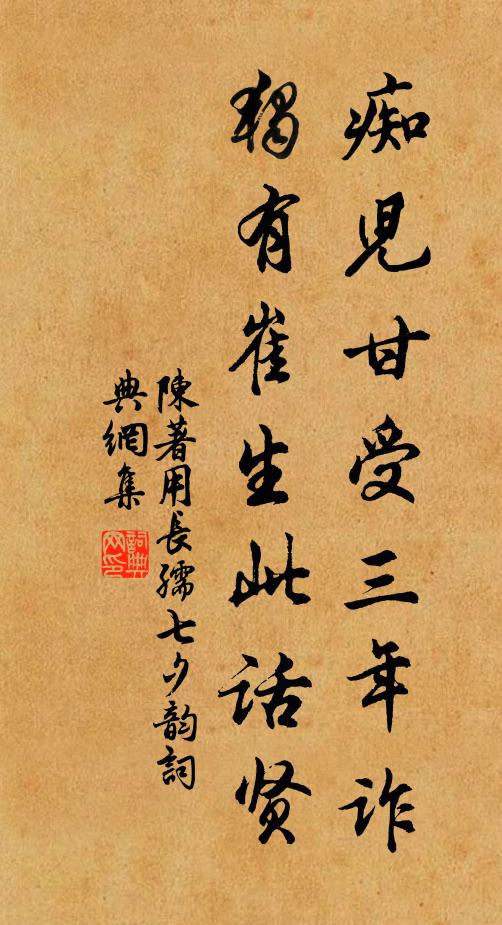 痴児甘受三年诈
獨有崔生此话贤
陳著用長孺七夕韵詞
典網集
詞典
网印